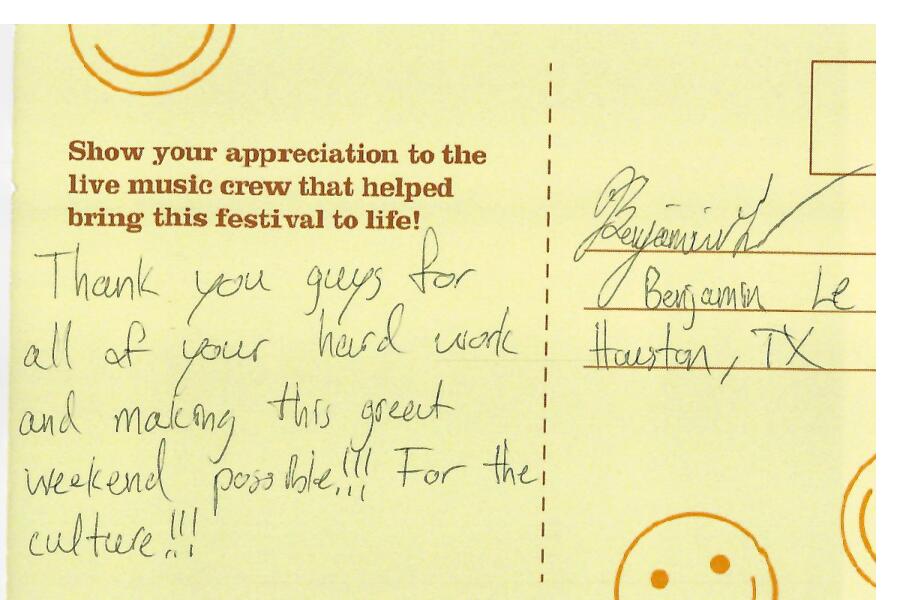 Show your appreciation to the
live music crew that helped
bring this festival to life!
Thank you guys for
all of your hard work
and making this great
weekend possible!!! For the
culture!!!
Benjamin L
Benjamin Le
Houston, TX